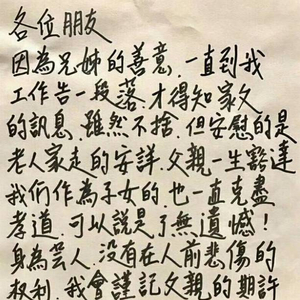 各位朋友
因為兄姊的善意,一直到我
工作告一段落,才得知家父
的訊息,雖然不捨,但安慰的是
老人家走的安詳,父親一生豁達
我們作為子女的,也一直克盡
孝道,可以說是了無遺憾!
身為芸人,沒有在人前悲傷的
權利,我會謹記父親的期許